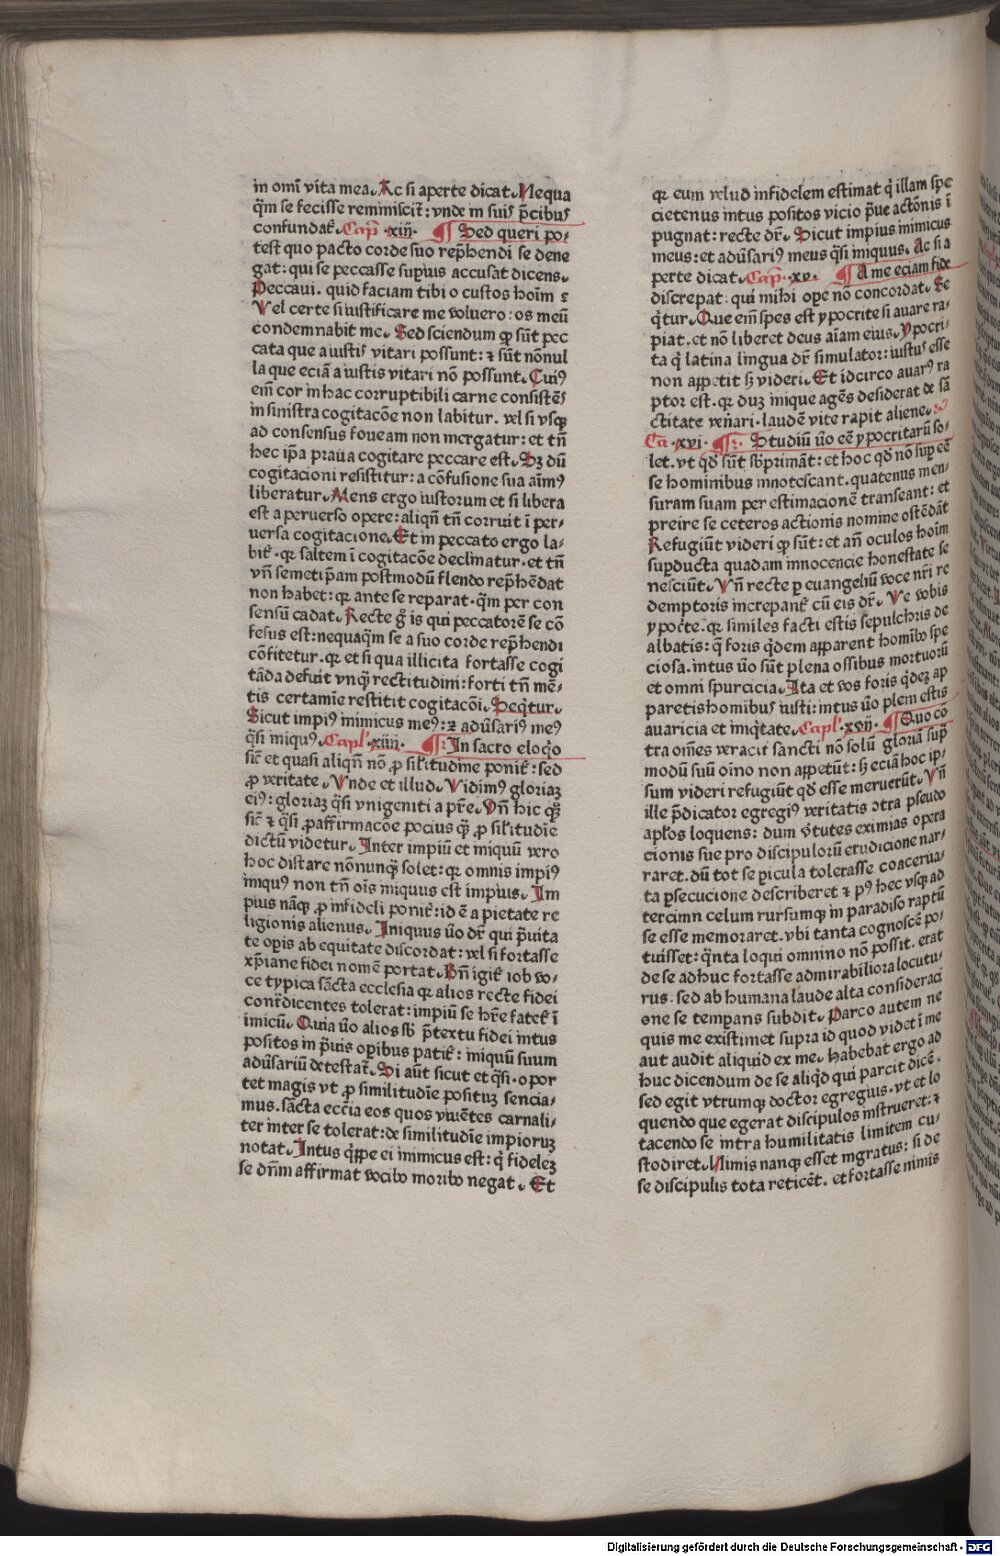 in omī vita mea. Ac si aperte dicat. Nequa
q̄m se fecisse reminiscit᷑: vnde in suis p̄cibus
confundat᷑. Cap̄ .xiij. ¶ Sed queri po⸗
test quo pacto corde suo rep̄hendi se dene
gat: qui se peccasse supius accusat dicens.
Peccaui. quid faciam tibi o custos hoīm ⁊
Vel certe si iustificare me voluero: os meū
condemnabit me. Sed sciendum ꝙ sūt pec
cata que a iustis vitari possunt: ⁊ sūt nōnul
la que eciā a iustis vitari nō possunt. Cuiꝰ
em̄ cor in hac corruptibili carne consistēs
in sinistra cogitacōe non labitur. vel si vsqꝫ
ad consensus foueam non mergatur: et tn̄
hec ip̄a praua cogitare peccare est. Sꝫ dū
cogitacioni resistitur: a cōfusione sua aīmꝰ
liberatur. Mens ergo iustorum et si libera
est a peruerso opere: aliqn̄ tn̄ corruit ī per⸗
uersa cogitacione. Et in peccato ergo la⸗
bit᷑. qꝛ saltem ī cogitacōe declinatur. et tn̄
vn̄ semetip̄am postmodū flendo rep̄hēdat
non habet: qꝛ ante se reparat. q̄m per con
sensū cadat. Recte gͦ is qui peccatorē se cō
fesus est: nequaq̄m se a suo corde rep̄hendi
cōfitetur. qꝛ et si qua illicita fortasse cogi
tāda defuit vnq̄ꝫ rectitudini: forti tn̄ mē⸗
tis certamie restitit cogitacōi. Seq̄tur.
Sicut impiꝰ inimicus meꝰ: ⁊ adūsariꝰ meꝰ
q̄si iniquꝰ. Capl᷑ .xiiij. ¶ In sacro eloq̇o
sic̄ et quasi aliqn̄ nō ꝓ sil̄itudine ponit᷑: sed
ꝓ veritate. Vnde et illud. Vidimꝰ gloriaꝫ
eiꝰ: gloriaꝫ q̄si vnigeniti a pr̄e. Vn̄ hic qꝫ
sic̄ ⁊ q̄si ꝓ affirmacōe pocius q̄ꝫ ꝓ sil̄itudīe
dictū videtur. Inter impiū et iniquū vero
hoc distare nōnunq̄ꝫ solet: qꝛ omnis impiꝰ
iniquꝰ non tn̄ oīs iniquus est impius. Im
pius nāqꝫ ꝓ infideli ponit᷑: id ē a pietate re
ligionis alienus. Iniquus v̄o dr̄ qui p̄uita
te opis ab equitate discordat: vel si fortasse
xp̄iane fidei nomē portat. Bn̄ igit᷑ iob vo⸗
ce typica sācta ecclesia qꝛ alios recte fidei
contr̄dicentes tolerat: impiū se hr̄e fatet᷑ ī
imicū. Quia v̄o alios sb̄ p̄textu fidei intus
positos in p̄uis opibus patit᷑: iniquū suum
adūsariū detestat᷑. Si aūt sicut et q̄si. opor
tet magis vt ꝓ similitudīe posituꝫ sencia⸗
mus. sācta ecc̄ia eos quos viuētes carnali⸗
ter inter se tolerat: de similitudīe impioruꝫ
notat. Intus q̄ppe ei inimicus est: q̇ fideleꝫ
se dn̄m affirmat vocibꝰ moribꝰ negat. Et
qꝛ eum velud infidelem estimat q̇ illam spe
cietenus intus positos vicio p̄ue actōnis ī
pugnat: recte dr̄. Sicut impius inimicus
meus: et adūsariꝰ meus q̄si iniquus. Ac si a
perte dicat. Cap̄. .xv. ¶ A me eciam fide
discrepat: qui mihi ope nō concordat. Se
q̇tur. Que em̄ spes est ypocrite si auare ra⸗
piat. et nō liberet deus aīam eius. Ypocri⸗
ta q̇ latina lingua dr̄ simulator: iustus esse
non appetit sꝫ videri. Et idcirco auarꝰ ra
ptor est. qꝛ duꝫ inique agēs desiderat de sā
ctitate ven̄ari. laudē vite rapit aliene.
Ca .xvi. ¶ Studiū v̄o eē ypocritarū so⸗
let. vt qd̄ sūt sb̄primāt: et hoc qd̄ nō sūp eē
se hominibus innotescant. quatenus men⸗
suram suam per estimacionē transeant: et
preire se ceteros actionis nomine ostēdāt
Refugiūt videri qꝫ sūt: et an̄ oculos hoīm
supducta quadam innocencie honestate se
nesciūt. Vn̄ recte p euangeliū voce nr̄i re
demptoris increpant᷑ cū eis dr̄. Ve vobis
ypocte. qꝛ similes facti estis sepulchris de
albatis: q̄ foris q̇dem apparent homībꝰ spe
ciosa. intus v̄o sūt plena ossibus mortuorū
et omni spurcicia. Ita et vos foris q̇deꝫ ap
paretis hominibus iusti: intus v̄o pleni estis
auaricia et iniq̇tate. Capl᷑ .xvij. ¶ Quo cō
tra oīmes veracit᷑ sancti nō solū gloriā sup̄
modū suū oīno non appetūt: sꝫ eciā hoc ip⸗
sum videri refugiūt qd̄ esse meruerūt. Vn̄
ille p̄dicator egregiꝰ veritatis ɔtra pseudo
apl̄os loquens: dum v̄tutes eximias opera
cionis sue pro discipulorū erudicione nar⸗
raret. dū tot se picula tolerasse coacerua⸗
ta psecucione describeret ⁊ pꝰ hec vsqꝫ ad
tercium celum rursumqꝫ in paradiso raptū
se esse memoraret. vbi tanta cognoscē po⸗
tuisset: q̄nta loqui omnino nō possit. erat
de se adhuc fortasse admirabiliora locutu⸗
rus: sed ab humana laude alta consideraci
one se tempans subdit. Parco autem ne
quis me existimet supra id quod videt ī me
aut audit aliquid ex me. habebat ergo ad
huc dicendum de se aliq̇d qui parcit dicē.
sed egit vtrumqꝫ doctor egregius. vt et lo
quendo que egerat discipulos instrueret: ⁊
tacendo se intra humilitatis limitem cu⸗
stodiret. Nimis nanqꝫ esset ingratus: si de
se discipulis tota reticēt. et fortasse nimis
Digitalisierung gefördert durch die Deutsche Forschungsgemeinschaft - DFG